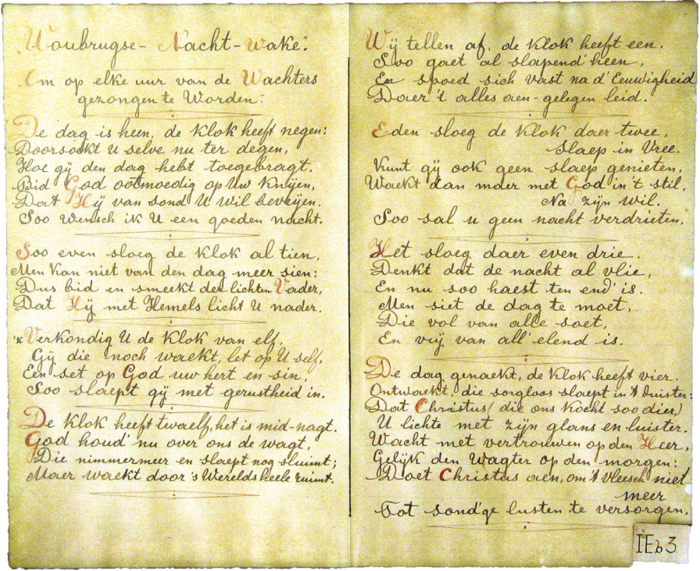 Woubrugse- Nacht-Wake.
Om op elke uur van de Wachters
gezongen te Worden:
De dag is heen, de klok heeft negen:
Doorsoekt U selve nu ter degen,
Hoe gij den dag hebt toegebragt.
Bid God ootmoedig op Uw Knijen,
Dat Hij van sond U wil bevrijen.
Soo Wensch ik U een goeden nacht.
Soo even sloeg de Klok al tien,
Men kan niet van den dag meer sien:
Dus bid en smeekt den lichten Vader,
Dat Hij met Hemels licht U nader.
'k Verkondig U de Klok van elf,
Gij die noch waekt, let op U self,
Een set op God uw hert en sin,
Soo slaept gij met gerustheid in.
De Klok heeft twaelf, het is mid-nagt.
God houd nu over ons de wagt,
Die nimmermeer en slaept nog sluimt;
Maer waekt door 's Werelds heele ruimt.
Wij tellen af, de Klok heeft een.
Soo gaet al slapend' heen,
En spoed sich vast na d'Eeuwigheid
Daer 't alles aen-gelegen leid.
Eden sloeg de Klok daer twee,
Slaep in Vree.
Kunt gij ook geen slaep genieten,
Waekt dan maer met God in 't stil,
Na zijn wil.
Soo sal u geen nacht verdrieten.
Het sloeg daer even drie.
Denkt dat de nacht al vlie,
En nu soo haest ten end' is.
Men siet de dag te moet,
Die vol van alle soet,
En vrij van all' elend is.
De dag genaekt, de Klok heeft vier.
Ontwaekt, die sorgloos slaept in 't duister:
Dat Christus (die ons Kocht soo dier)
U lichte met zijn glans en luister.
Wacht met vertrouwen op den Heer,
Gelijk den Wagter op den morgen:
Doet Christus aen, om 't Vleesch niet
meer
Tot sond'ge lusten te versorgen.
IEb3